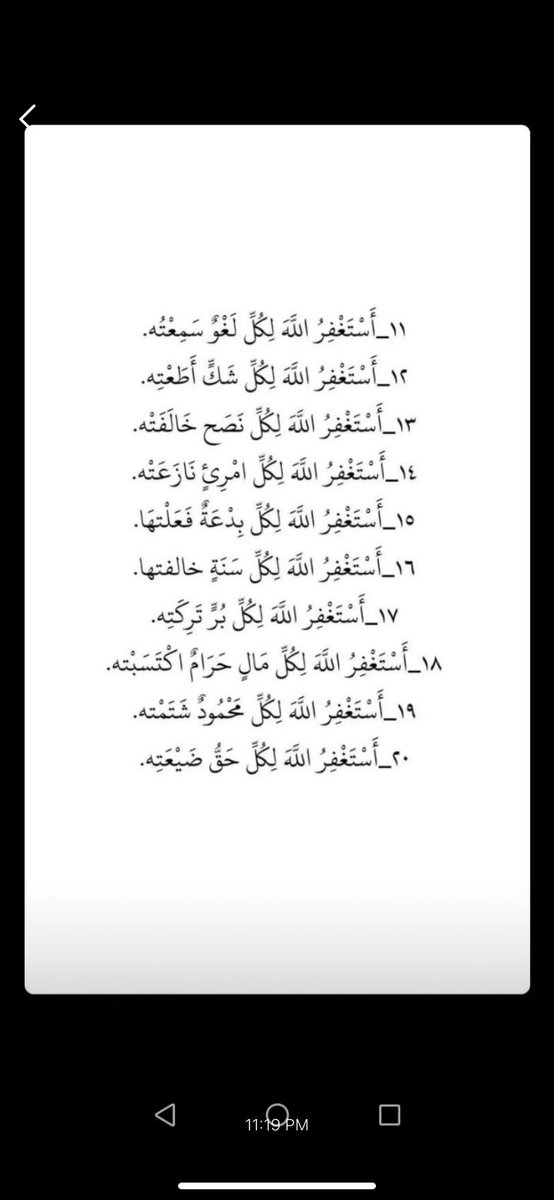 ١١_أَسْتَغْفِرُ اللَّهَ لِكُلِّ لَغْوٌ سَمِعْتُه.
١٢_أَسْتَغْفِرُ اللَّهَ لِكُلِّ شَكٍّ أَطَعْتِه.
١٣_أَسْتَغْفِرُ اللَّهَ لِكُلِّ نَصَح خَالَفَتْه.
١٤_أَسْتَغْفِرُ اللَّهَ لِكُلِّ امْرِئٍ نَازَعَتْه.
١٥_أَسْتَغْفِرُ اللَّهَ لِكُلِّ بِدْعَةٌ فَعَلْتهَا.
١٦_أَسْتَغْفِرُ اللَّهَ لِكُلِّ سَنَةٍ خالفتها.
١٧_أَسْتَغْفِرُ اللَّهَ لِكُلِّ بُرٍّ تَرِكَتِه.
١٨_أَسْتَغْفِرُ اللَّهَ لِكُلِّ مَالٍ حَرَامٌ اكْتَسَبْته.
١٩_أَسْتَغْفِرُ اللَّهَ لِكُلِّ مَحْمُودٌ شَتَمْته.
٢٠_أَسْتَغْفِرُ اللَّهَ لِكُلِّ حَقُّ ضَيْعَتِه.
11:19 PM